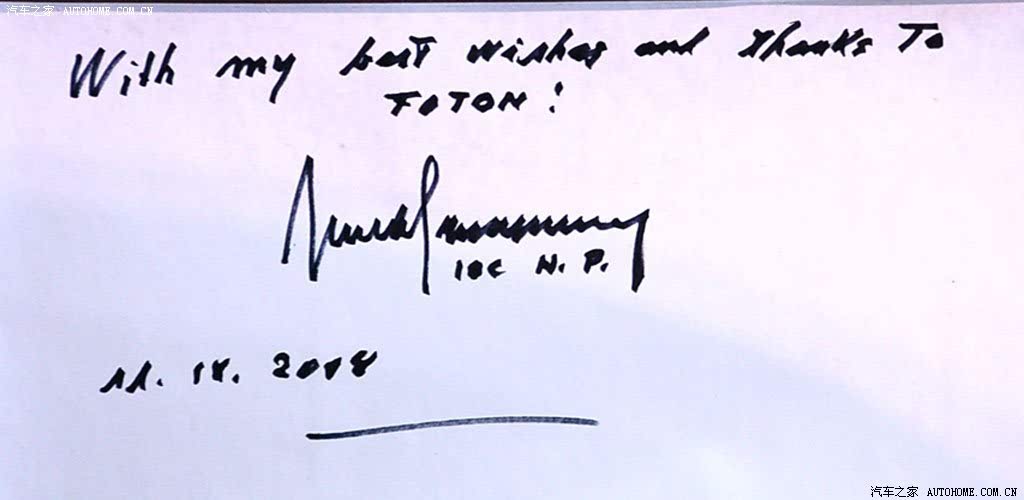 汽车之家 AUTOHOME.COM.CN
With my best wishes and thanks To
FOTON!
IOC H. P.
11. 18. 2008
汽车之家 AUTOHOME.COM.CN